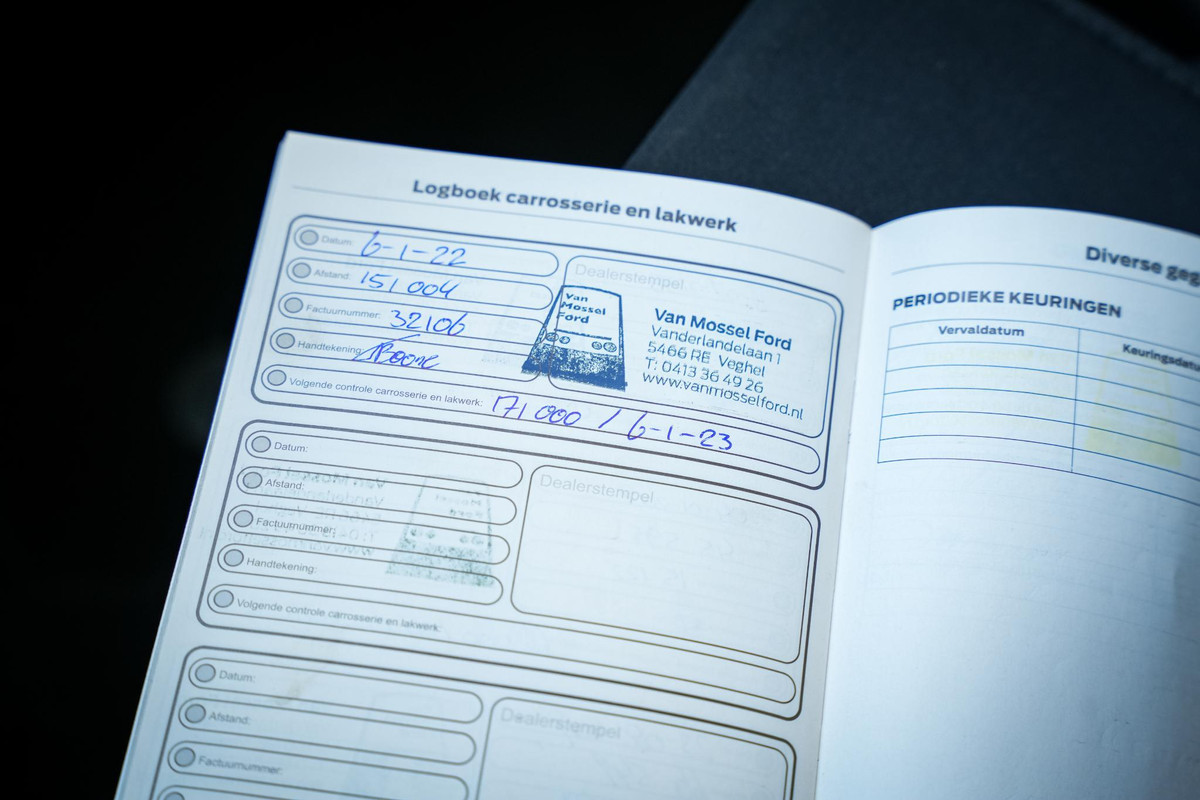 Logboek carrosserie en lakwerk
Datum: 6-1-22
Afstand: 151 004
Factuurnummer: 32106
Handtekening:
Volgende controle carrosserie en lakwerk: 171 000 / 6-1-23
Dealerstempel
Van
Mossel
Ford
Van Mossel Ford
Vanderlandelaan 1
5466 RE Veghel
T: 0413 36 49 26
www.vanmosselford.nl
Datum:
Afstand:
Factuurnummer:
Handtekening:
Volgende controle carrosserie en lakwerk:
Dealerstempel
Datum:
Afstand:
Factuurnummer:
Dealerstempel
Diverse geg
PERIODIEKE KEURINGEN
Vervaldatum
Keuringsdatu